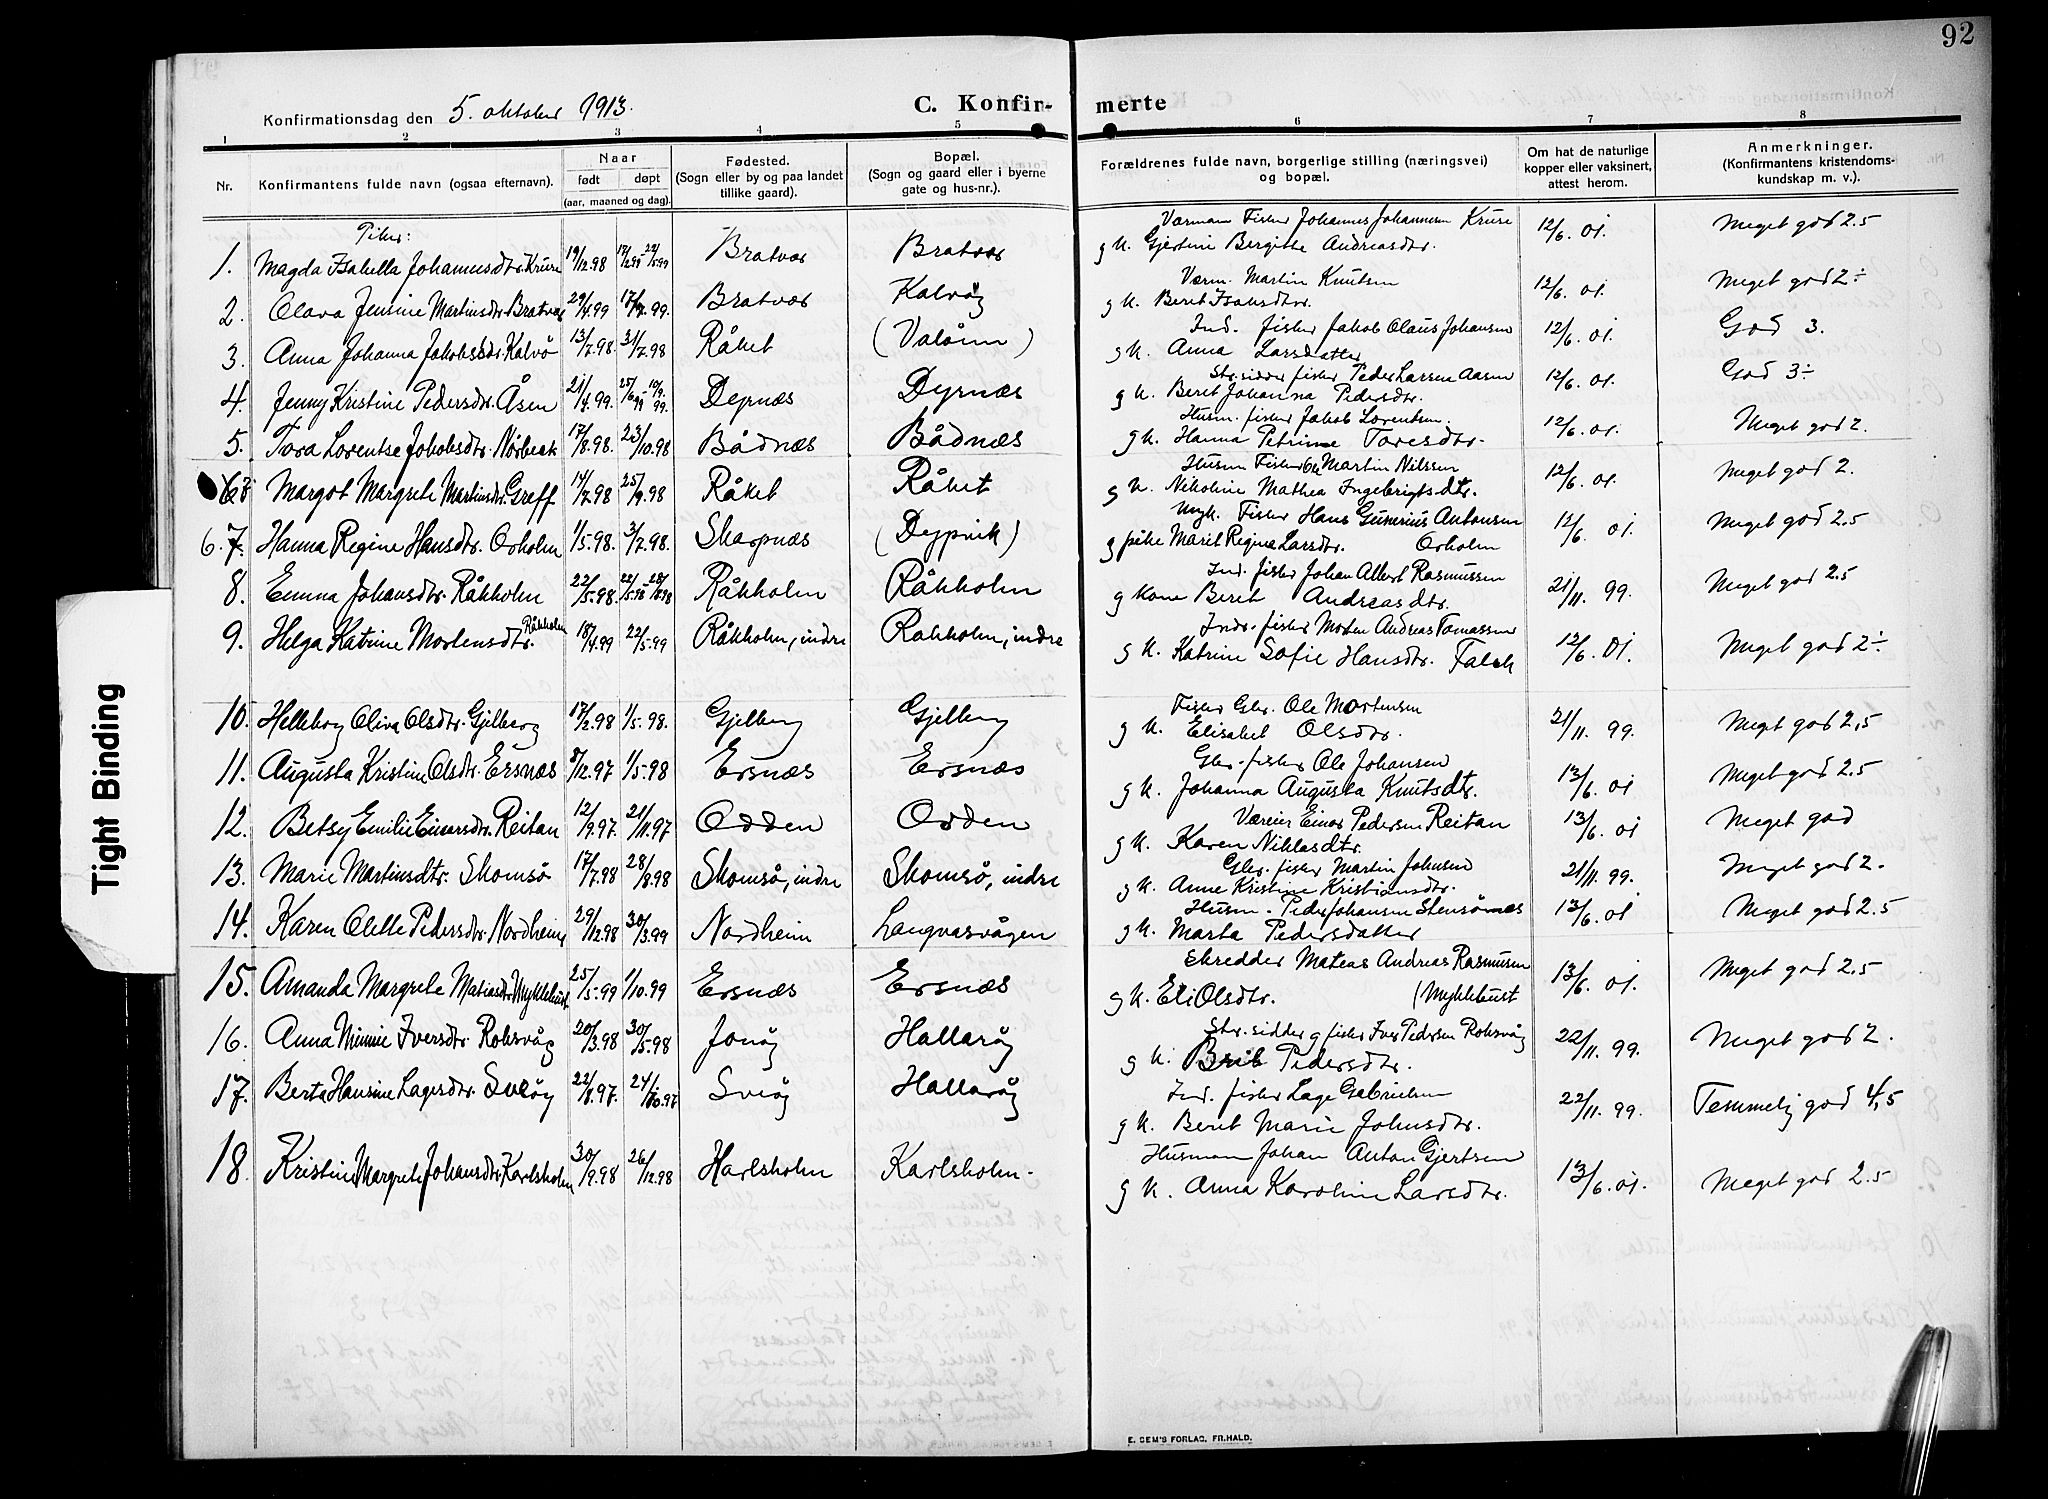 92
Tight Binding
Konfirmationsdag den 5. oktober 1913.
C. Konfir-merte
1 2 3 4 5 6 7 8
Nr.
Konfirmantens fulde navn (ogsaa efternavn).
Naar
født døpt
(aar, maaned og dag).
Fødested.
(Sogn eller by og paa landet
tillike gaard).
Bopæl.
(Sogn og gaard eller i byerne
gate og hus-nr.).
Forældrenes fulde navn, borgerlige stilling (næringsvei)
og bopæl.
Om hat de naturlige
kopper eller vaksinert,
attest herom.
Anmerkninger.
(Konfirmantens kristendoms-
kundskap m. v.).
Piker:
Varmann Fisker Johannes Johannesen Kruse
1. Magda Isabella Johannesdtr. Kruse 19/12.98 Bratvær Bratvær g k. Gjertine Bergitte Andreasdtr. 12/6. 01. Meget god 2.5
Værm. Martin Knutsen
2. Olava Jensine Martinsdtr. Bratvær 29/4.99 17/7.99. Bratvær Kalvøy g k. Beret Isaksdtr. 12/6. 01. Meget god 2÷
Ind. fisker Jakob Olaus Johansen
3. Anna Johanna Jakobsdtr. Kalvø 13/7.98. 31/7.98 Råket (Valøen) g k. Anna Larsdatter 12/6. 01. God 3.
Str.sidder fisker Peder Larsen Aasen
4. Jenny Kristine Pedersdtr. Åsen 21/4.99. 25/6 99 - 10/9. 99. Dyrnæs Dyrnæs g k. Beret Johanna Pedersdtr. 12/6. 01. God 3÷
Husm. fisker Jakob Lorentsen.
5. Tora Lorentse Jakobsdtr. Nørbeck 17/8.98. 23/10.98 Bådnæs Bådnæs g k. Hanna Petrine Toresdtr. 12/6. 01. Meget god 2.
Husm Fisker Ole Martin Nilssen
7 Margot Margrete Martinsdtr. Greff 14/7.98 25/9.98 Råket Råket g k. Nikoline Mathea Ingebrigtsdtr. 12/6. 01. Meget god 2.
Ungk. Fisker Hans Gunerius Antonsen
6. 7. Hanna Regine Hansdtr. Orholm 1/5.98. 3/7.98. Skarpnæs (Dypvik) g pike Marit Regina Larsdtr. Orholm 12/6. 01. Meget god 2.5
Ind. fisker Johan Albert Rasmussen
8. Emma Johansdtr. Råkholm 22/5.98. 22/5.98 - 28/8.98 Råkholm Råkholm g kone Beret Andreasdtr. 21/11. 99. Meget god 2.5
Indr. fisker Morten Andreas Tomassen
9. Helga Katrine Mortensdtr. Råkholm 18/4.99 22/5.99 Råkholm, indre Råkholm, indre g k. Katrine Sofie Hansdtr. Falch 12/6. 01. Meget god 2÷
Fisker Gbr. Ole Mortensen
10. Helleborg Oliva Olsdtr. Gjelberg 17/2.98 1/5.98. Gjelberg Gjelberg g k. Elisabet Olsdtr. 21/11. 99. Meget god 2,5
Gbr. fisker Ole Johansen
11. Augusta Kristine Olsdtr. Ersnæs 8/12.97 1/5.98 Ersnæs Ersnæs g k. Johanna Augusta Knutsdtr. 13/6. 01 Meget god 2.5
Væreier Einar Pedersen Reitan
12. Betsy Emilie Einarsdtr. Reitan 12/9.97. 21/11.97 Odden Odden g k. Karen Niklasdtr. 13/6. 01 Meget god
Gbr. fisker Martin Johnsen
13. Marie Martinsdtr. Skomsø 17/7.98 28/8.98 Skomsø, indre Skomsø, indre g k. Anne Kristine Kristiansdtr. 21/11. 99. Meget god 2.
Husm. Peder Johansen Stensønæs
14. Karen Olette Pedersdtr. Nordheim 29/12.98 30/3.99 Nordheim Langvasvågen g k. Marta Pedersdatter 13/6. 01 Meget god 2.5
Skredder Mateas Andreas Rasmussen
15. Amanda Margrete Matiasdtr. Myklebust 25/5.99 1/10.99 Ersnæs Ersnæs g k. Eli Olsdtr. (Myklebust 13/6. 01. Meget god 2.5
Str.sidder g fisker Iver Pedersen Roksvåg
16. Anna Minnie Iversdtr. Roksvåg 20/3.98 30/5.98 Jonøy Hallarøy g k. Brit Pedersdtr. 22/11. 99. Meget god 2.
Ind. fisker Lage Gabrielsen
17. Berta Hansine Lagesdtr. Sveøy 22/8.97. 24/10.97 Sveøy Hallarøy g k. Beret Marie Johnsdtr. 22/11. 99. Temmelig god 4,5
Husmann Johan Anton Gjertsen
18. Kristine Margrete Johansdtr. Karlsholm 30/9.98 26/12.98 Karlsholm Karlsholm. g k. Anna Karoline Larsdtr. 13/6. 01. Meget god 2.5
E. SEM'S FORLAG, FR.HALD.